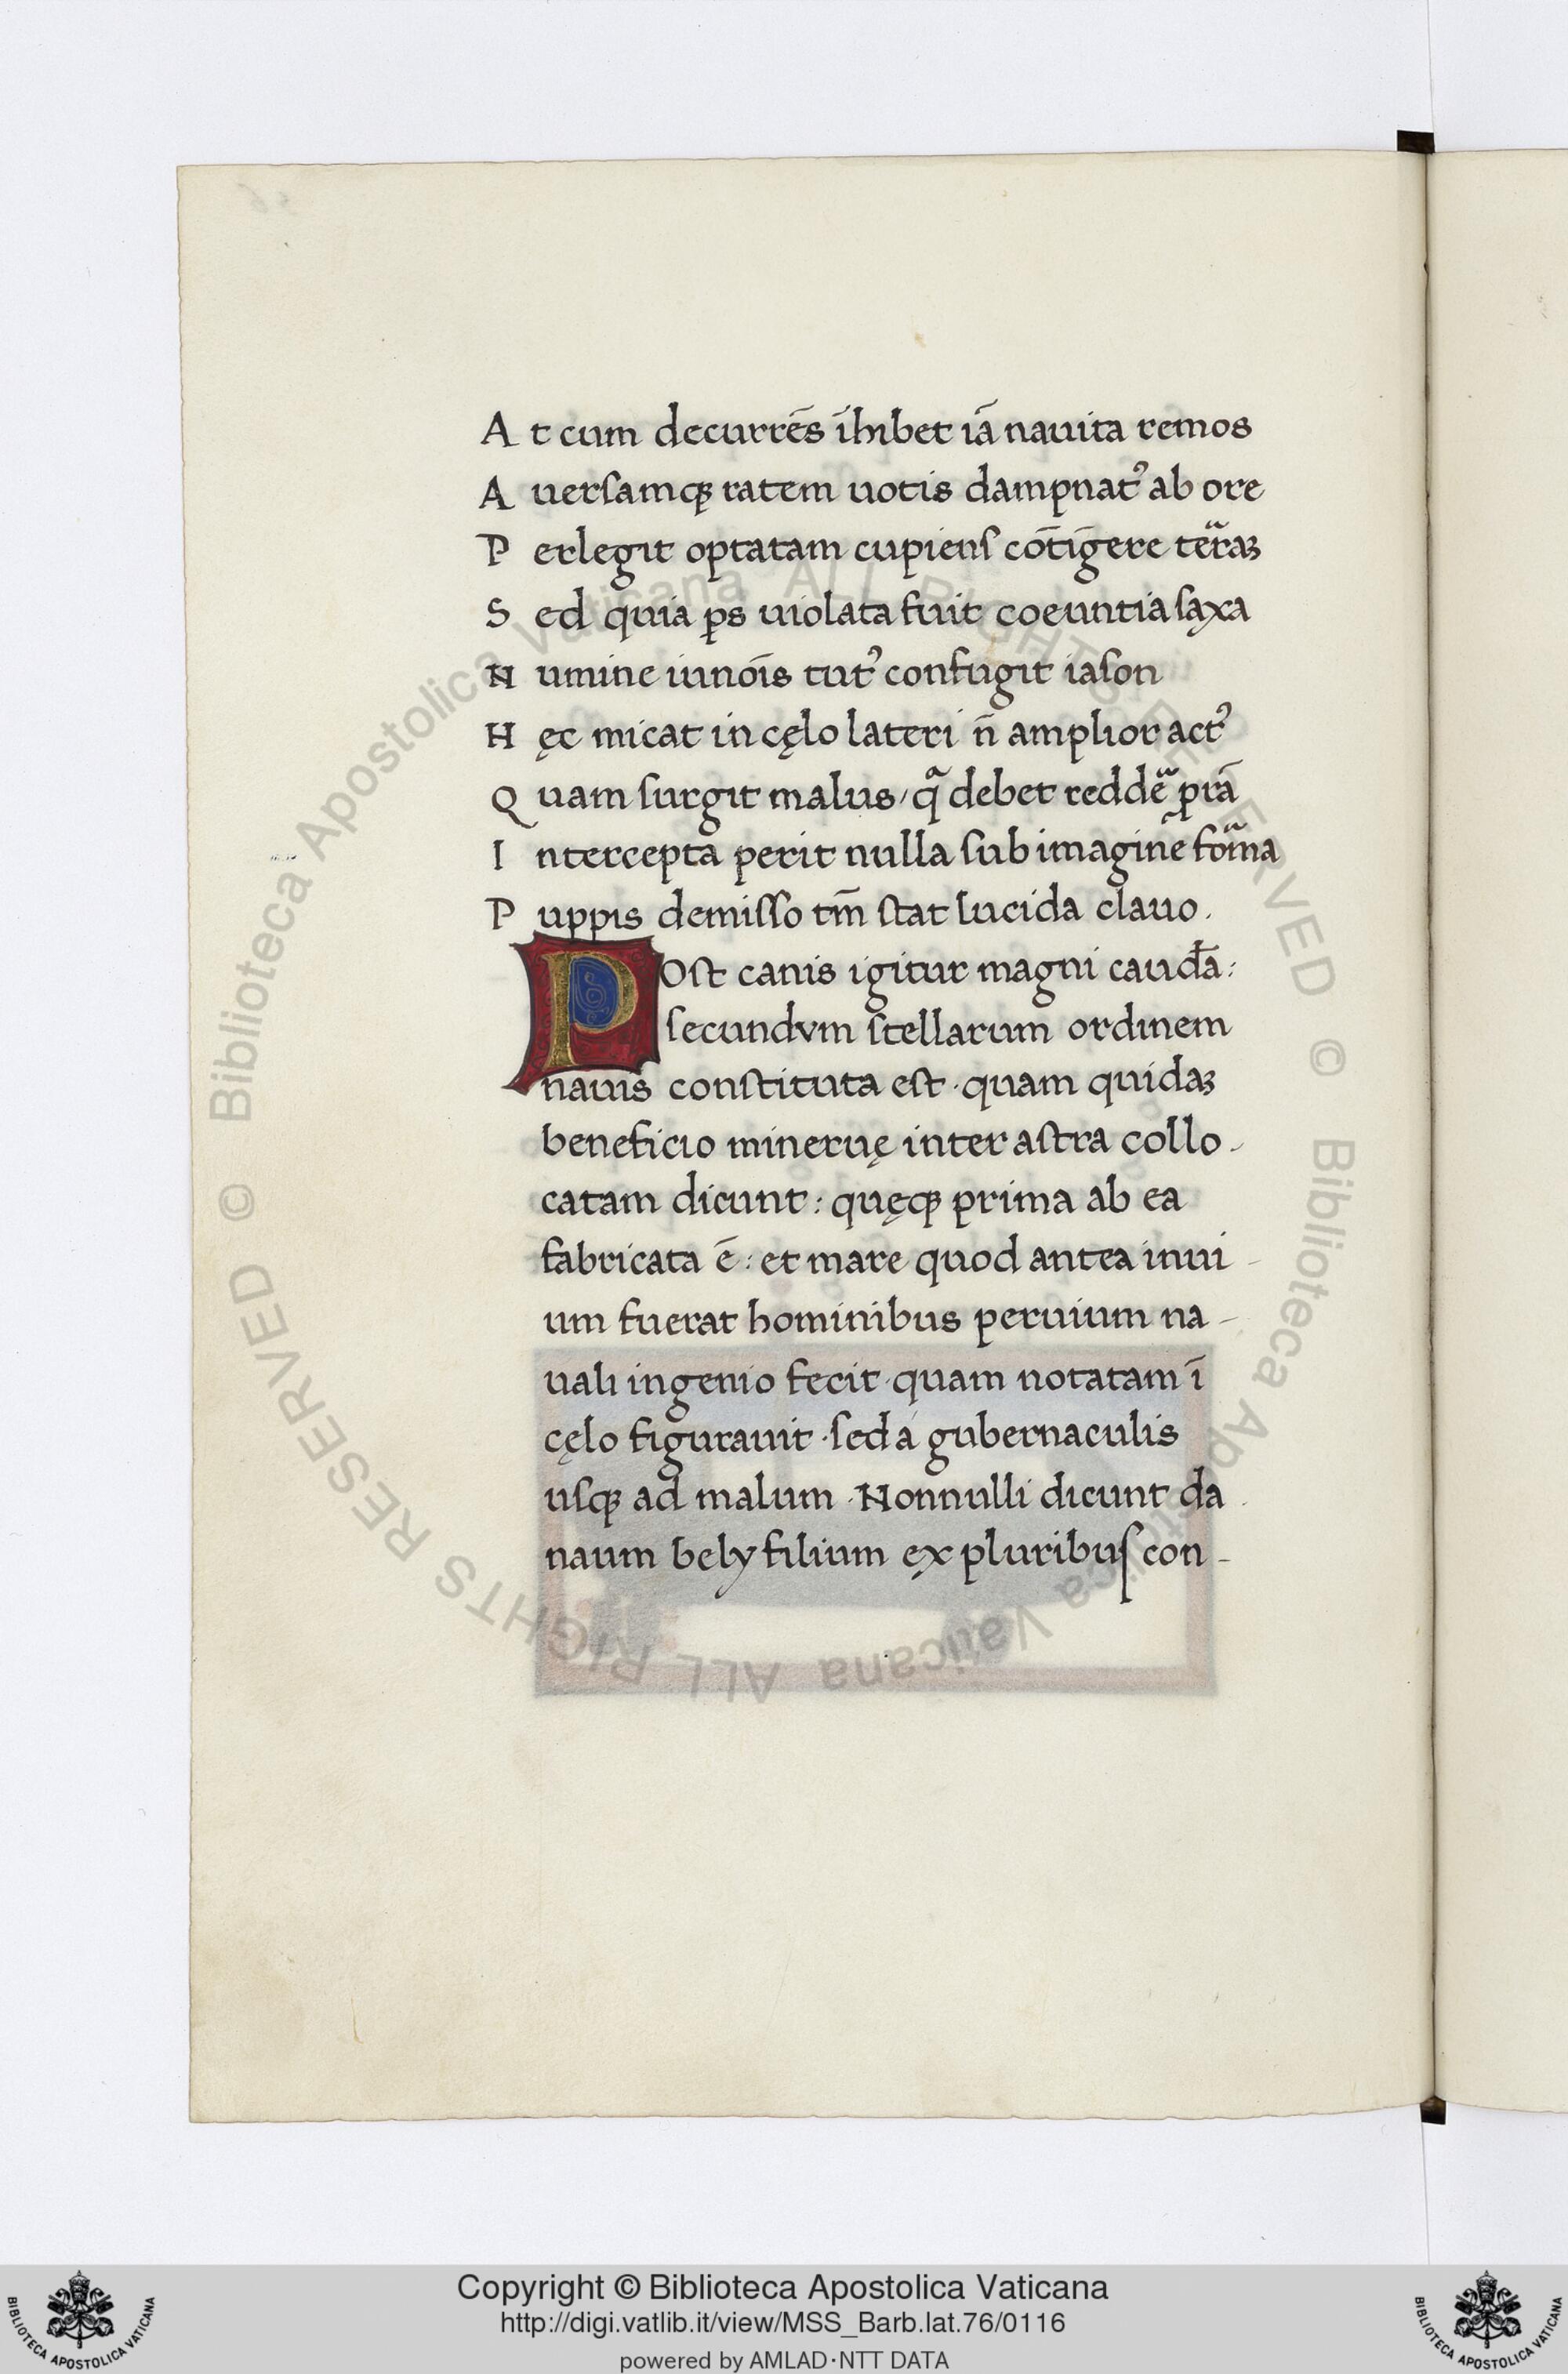 A t cum decurrēs īhibet iā nauita remos
A uersamqꝫ ratem uotis dampnatᵓ ab ore
P erlegit optatam cupienſ cōtīgere terᷓaꝫ
S ed quia ꝑs uiolata fuit coeuntia ſaxa
N umine iunoīs tutᵓ confugit iaſon
H ęc micat in cęlo lateri n̄ amplior actᵓ
Q uam ſurgit malus / qᷓ debet reddeᷓ prā
I ntercepta perit nulla ſub imagine forᷓna
P uppis demiſſo tm̄ ſtat lucida clauo .
POſt canis igitur magni caudā :
ſecundvm ſtellarum ordinem
nauis conſtituta eſt · quam quidaꝫ
beneficio mineruę inter aſtra collo -
catam dicunt : quęqꝫ prima ab ea
fabricata ē : et mare quod antea inui -
um fuerat hominibus peruium na -
uali ingenio fecit · quam notatam ī
cęlo figurauit · ſed á gubernaculis
uſqꝫ ad malum · Nonnulli dicunt da -
naum bely filium ex pluribuſ con -
Biblioteca Apostolica Vaticana ALL RIGHTS RESERVED ©
Biblioteca Apostolica Vaticana ALL RIGHTS RESERVED ©
Copyright © Biblioteca Apostolica Vaticana
http://digi.vatlib.it/view/MSS_Barb.lat.76/0116
powered by AMLAD·NTT DATA
BIBLIOTECA APOSTOLICA VATICANA
BIBLIOTECA APOSTOLICA VATICANA